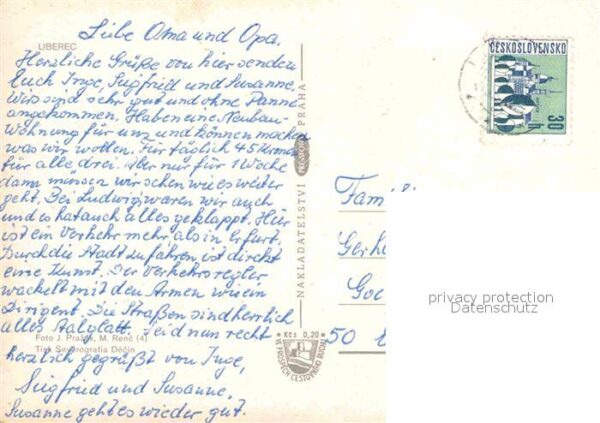 LIBEREC
Liebe Oma und Opa.
Herzliche Grüße von hier senden
Euch Inge, Siegfried und Susanne.
Wir sind sehr gut und ohne Panne
angekommen. Haben eine Neubau-
Wohnung für uns und können machen
was wir wollen. Für täglich 45 Kronen
für alle drei. Aber nur für 1 Woche
dann müssen wir sehen wie es weiter
geht. Bei Ludwig waren wir auch
und es hat auch alles geklappt. Hier
ist ein Verkehr mehr als in Erfurt.
Durch die Stadt zu fahren, ist direkt
eine Kunst. Der Verkehrsregler
wackelt mit den Armen wie ein
Dirigent. Die Straßen sind herrlich
alles Aalglatt. Seid nun recht
herzlich gegrüßt von Inge,
Siegfried und Susanne.
Susanne geht es wieder gut.
Foto J. Pražák, M. Renč (4)
Tisk Severografia Děčín
NAKLADATELSTVÍ PRESSFOTO PRAHA
Kčs 0,20
VE PROSPĚCH CESTOVNÍHO RUCHU
ČESKOSLOVENSKO
30 h
Fam
Gerh
Goe
50
privacy protection
Datenschutz